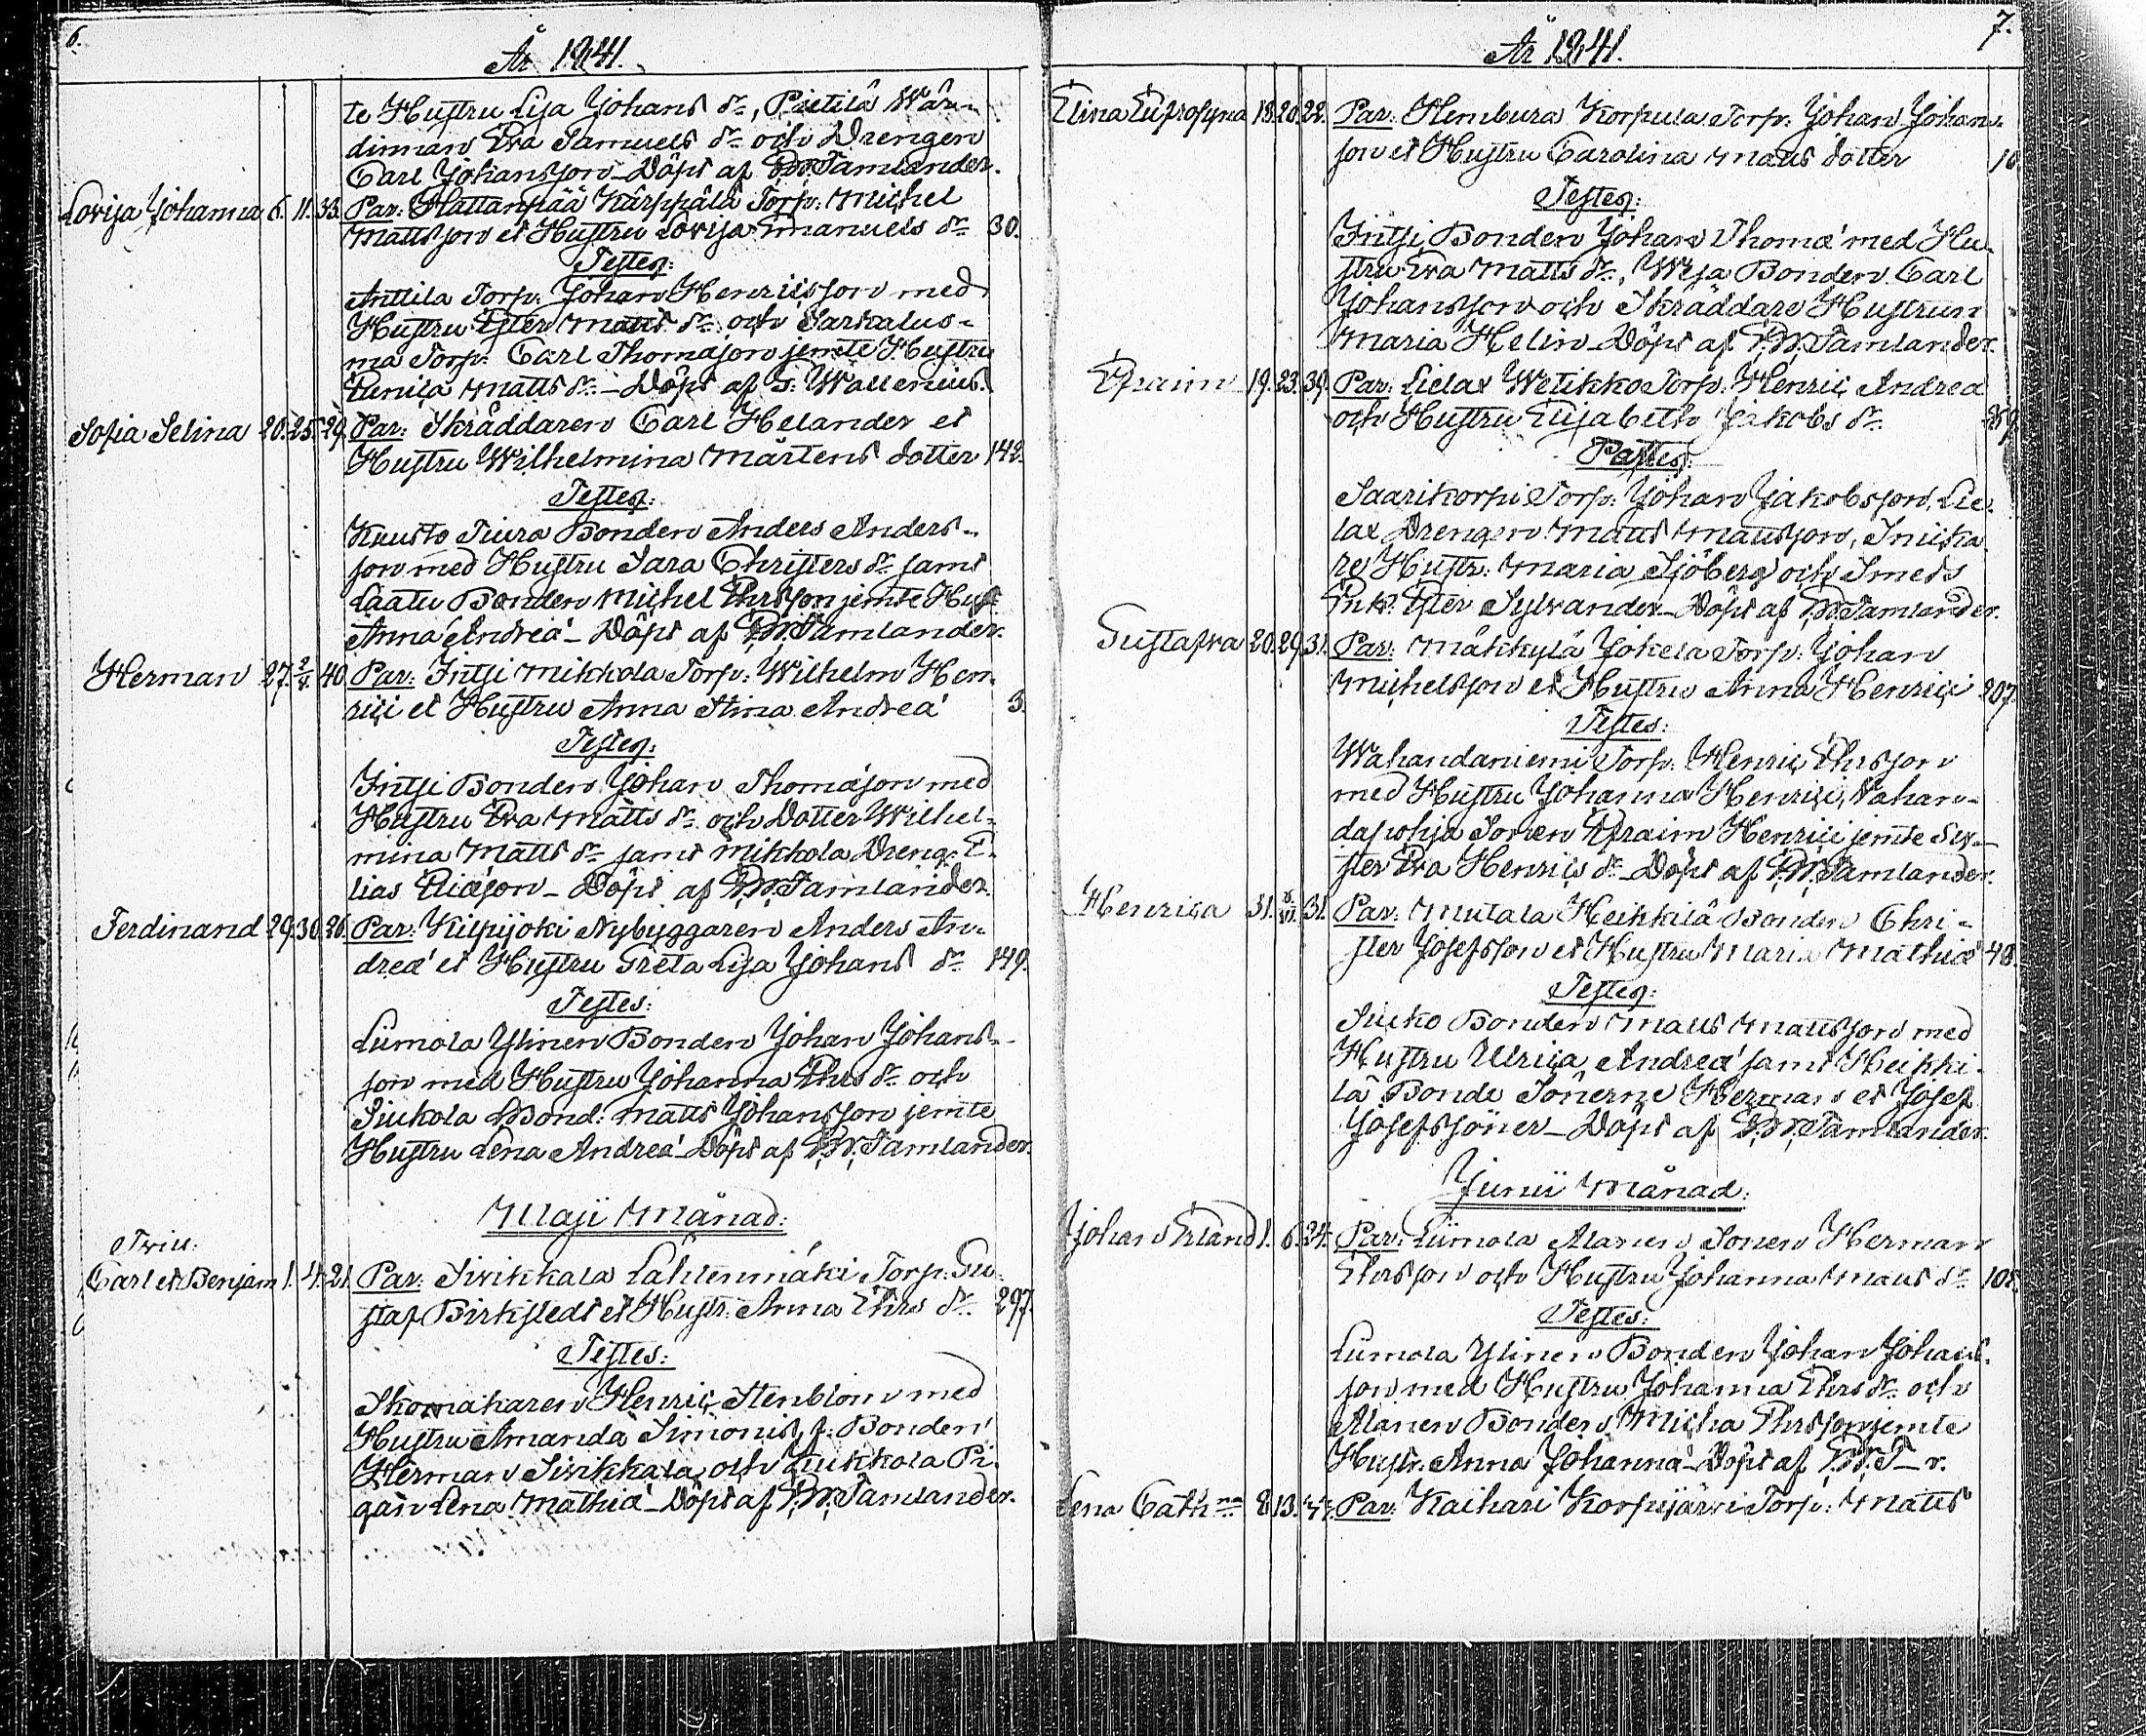 6.
År 1841.
te Hustru Lisa Johans dr, Pietilä Wär-
dinnan Eva Samuels dr och Drengen
Carl Johansson – Döpt af P.W. Tamlander.
Lovisa Johanna 6. 11. 33. Par: Hattanpää Kärppälä Torp: Michel
Mattsson et Hustru Lovisa Emanuels dr 30.
Testes:
Anttila Torp: Johan Henricsson med
Hustru Ester Matts dr och Sarkalus-
ma Torp: Carl Thomasson jemte Hustru
Eenica Matts dr – Döpt af S: Wallenius.
Sofia Selina 20. 25. 29. Par: Skräddaren Carl Helander et
Hustru Wilhelmina Mårtens dotter 142.
Testes:
Knusto Tiura Bonden Anders Anders-
son med Hustru Sara Christers dr samt
Laatu Bonden Michel Ehrsson jemte Hust
Anna Andreæ – Döpt af P.W. Tamlander.
Herman 27. 2/V. 40. Par: Intji Mikkola Torp: Wilhelm Hen-
rici et Hustru Anna Stina Andreæ 3.
Testes:
Intji Bonden Johan Thomasson med
Hustru Eva Matts dr och Dotter Wilhel-
mina Matts dr samt Mikkola Dreng: E-
lias Eliæson – Döpt af P.W. Tamlander.
Ferdinand 29. 30. 26. Par: Kilpijoki Nybyggaren Anders An-
dreæ et Hustru Greta Lisa Johans dr 149.
Testes:
Liimola Ylinen Bonden Johan Johans-
son med Hustru Johanna Ehrs dr och
Siukola Bond: Matts Johansson jemte
Hustru Lena Andreæ – Döpt af P.W. Tamlander.
Maji Månad:
Twill:
Carl et Benjam 1. 4. 21. Par: Sivikkala Lahtenmäki Torp: Gu-
staf Birkstedt et Hustr. Anna Ehrs dr 297.
Testes:
Skomakaren Henric Stenblom med
Hustru Amanda Simonis, f. Bonden
Herman Sivikkala och Kukkola Pi-
gan Lena Mathiæ – Döpt af P.W. Tamlander.
7.
År 1841.
Elina Eufrosyna 18. 20. 22. Par: Hembura Korpula Torp: Johan Johans-
son et Hustru Carolina Matts dotter 10
Testes:
Intji Bonden Johan Thomæ med Hu-
stru Eva Matts dr, Wesa Bonden Carl
Johansson och Skräddare Hustrun
Maria Helin – Döpt af P.W. Tamlander.
Efraim 19. 23. 39. Par: Lielax Wetikko Torp. Henric Andreæ
och Hustru Elisabeth Jakobs dr 259.
Testes:
Saarikorpi Torp: Johan Jakobsson, Lie-
lax Drengen Matts Mattsson, Snicka-
re Hustr: Maria Sjöberg och Smeds
Enk: Ester Sylvander – Döpt af P.W. Tamlander.
Gustafva 20. 29. 31. Par: Mäkkylä Jokela Torp: Johan
Michelsson et Hustru Anna Henrici 207.
Testes:
Wahandaniemi Torp: Henric Ehrsson
med Hustru Johanna Henrici, Nahan-
dapohja Sonen Efraim Henrici jemte Sy-
ster Eva Henrics dr – Döpt af P.W. Tamlander.
Henrica 31. 6/VI. 31. Par: Mutala Heikkilä Bonden Chri-
ster Josefsson et Hustru Maria Mathiæ 48.
Testes:
Siuko Bonden Matts Mattsson med
Hustru Ulrica Andreæ samt Heikki-
lä Bonde Sönerne Herman et Josef
Josefssöner – Döpt af P.W. Tamlander.
Junii Månad:
Johan Erland 1. 6. 24. Par: Liimola Alanen Sonen Herman
Ehrsson och Hustru Johanna Matts dr 108.
Testes:
Liimola Ylinen Bonden Johan Johans-
son med Hustru Johanna Ehrs dr och
Alanen Bonden Micha Ehrsson jemte
Hustr. Anna Johannæ – Döpt af P.W. T–r.
Lena Cathna 8. 13. Par: Kaihari Korpijärvi Torp: Matts